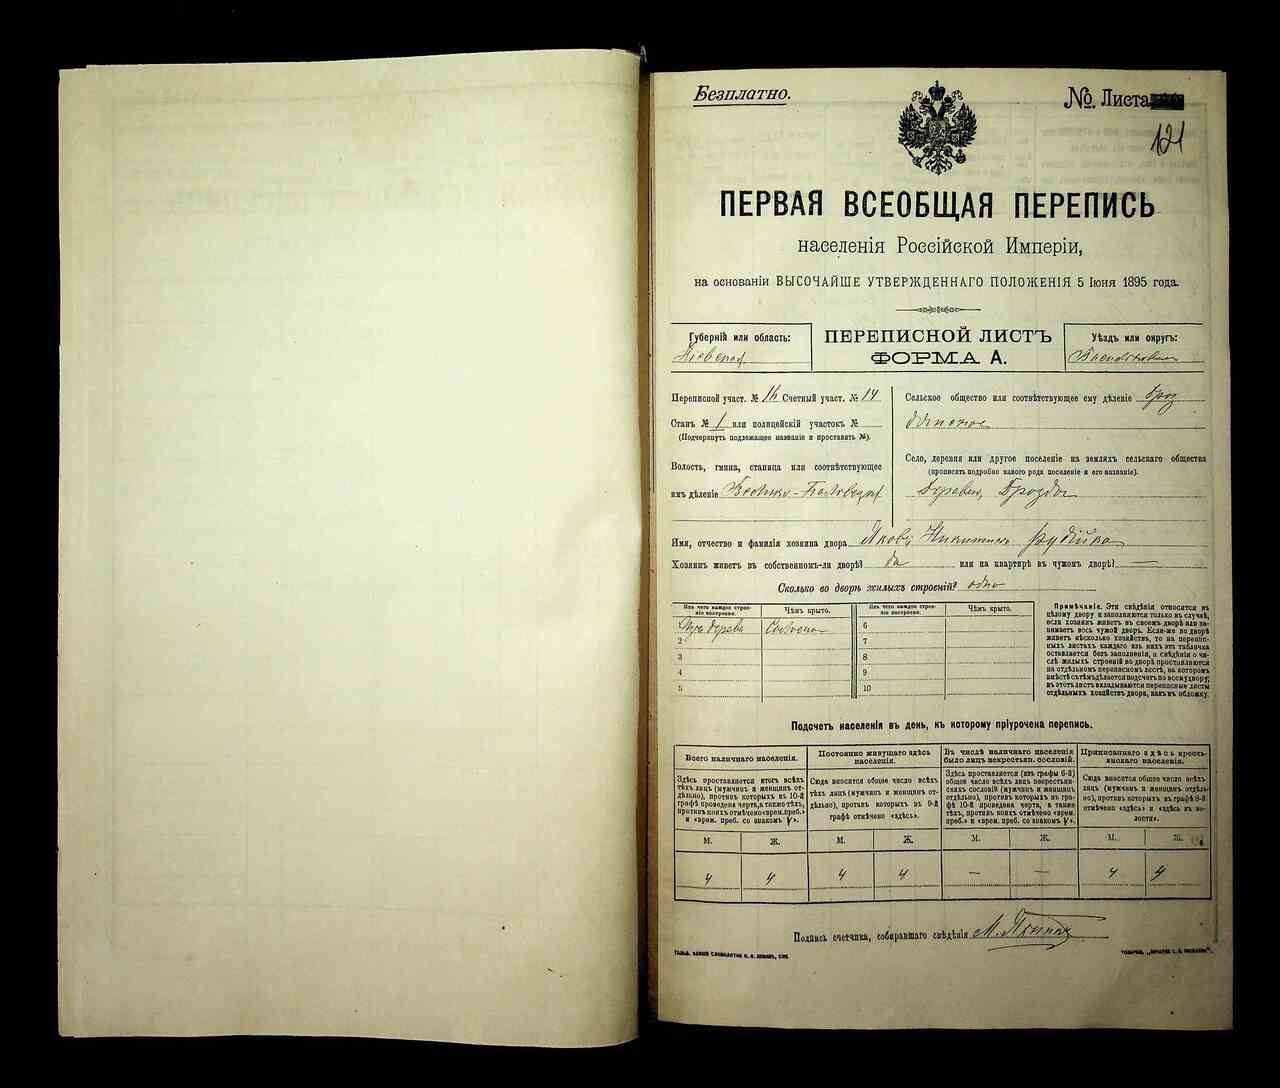 Безплатно.
№. Листа
121
ПЕРВАЯ ВСЕОБЩАЯ ПЕРЕПИСЬ
населенія Россійской Имперіи,
на основаніи ВЫСОЧАЙШЕ УТВЕРЖДЕННАГО ПОЛОЖЕНІЯ 5 Іюня 1895 года.
Губерній или область:
Кіевская
ПЕРЕПИСНОЙ ЛИСТЪ
ФОРМА А.
Уѣздъ или округъ:
Переписной участ. № 16 Счетный участ. № 14
Станъ № 1 или полицейскій участокъ №
(Подчеркнуть подлежащее названіе и проставить №).
Волость, гмина, станица или соотвѣтствующее
имъ дѣленіе
Сельское общество или соотвѣтствующее ему дѣленіе
Село, деревня или другое поселеніе на земляхъ сельскаго общества
(прописать подробно какого рода поселеніе и его названіе).
Деревня, Грозды
Имя, отчество и фамилія хозяина двора Яковъ Никитинъ
Хозяинъ живетъ въ собственномъ-ли дворѣ? да или на квартирѣ въ чужомъ дворѣ? —
Сколько во дворѣ жилыхъ строеній? одно
Изъ чего каждое строеніе построено.
Чѣмъ крыто.
Изъ чего каждое строеніе построено.
Чѣмъ крыто.
Изъ дерева Соломою 6
2 7
3 8
4 9
5 10
Примѣчаніе. Эти свѣдѣнія относятся къ
цѣлому двору и заполняются только въ случаѣ,
если хозяинъ живетъ въ своемъ дворѣ или занимаетъ
весь чужой дворъ. Если-же во дворѣ
живетъ нѣсколько хозяйствъ, то на переписныхъ
листахъ каждаго изъ нихъ эта табличка
оставляется безъ заполненія, а свѣдѣнія о числѣ
жилыхъ строеній во дворѣ проставляются
на отдѣльномъ переписномъ листѣ, на которомъ
вмѣстѣ съ тѣмъ дѣлается подсчетъ по всему двору;
въ этотъ листъ вкладываются переписные листы
отдѣльныхъ хозяйствъ двора, какъ въ обложку.
Подсчетъ населенія въ день, къ которому пріурочена перепись.
Всего наличнаго населенія.
Постоянно живущаго здѣсь населенія.
Въ числѣ наличнаго населенія было лицъ некрестьян. сословій.
Приписаннаго здѣсь крестьянскаго населенія.
Здѣсь проставляется итогъ всѣхъ
тѣхъ лицъ (мужчинъ и женщинъ отдѣльно),
противъ которыхъ въ 10-й
графѣ проведена черта, а также тѣхъ,
противъ коихъ отмѣчено «врем. преб.»
и «врем. преб. со знакомъ V».
Сюда вносится общее число всѣхъ
тѣхъ лицъ (мужчинъ и женщинъ отдѣльно),
противъ которыхъ въ 9-й
графѣ отмѣчено «здѣсь».
Здѣсь проставляется (изъ графы 6-й)
общее число всѣхъ лицъ некрестьянскихъ
сословій (мужчинъ и женщинъ
отдѣльно), противъ которыхъ въ графѣ
10-й проведена черта, а также
тѣхъ, противъ коихъ отмѣчено «врем.
преб.» и «врем. преб. со знакомъ V».
Сюда вносится общее число всѣхъ
лицъ (мужчинъ и женщинъ отдѣльно),
противъ которыхъ въ графѣ 8-й
отмѣчено «здѣсь» и «здѣсь въ волости».
М. Ж. М. Ж. М. Ж. М. Ж.
4 4 4 4 — — 4 4
Подпись счетчика, собиравшаго свѣдѣнія